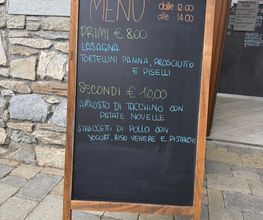 MENU
dalle 12:00
alle 14:00
PRIMI € 8,00
LASAGNA
TORTELLINI PANNA, PROSCIUTTO
E PISELLI
SECONDI € 10,00
ARROSTO DI TACCHINO CON
PATATE NOVELLE
STRACCETTI DI POLLO CON
YOGURT, RISO VENERE E PISTACCHI